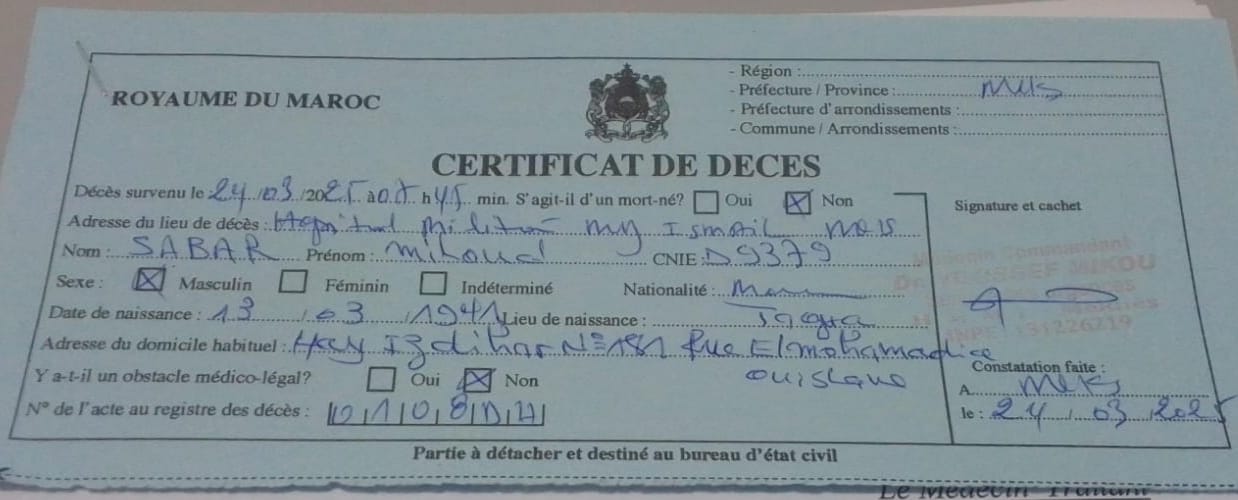 ROYAUME DU MAROC
- Région :
- Préfecture / Province : Meks
- Préfecture d'arrondissements :
- Commune / Arrondissements :
CERTIFICAT DE DECES
Décès survenu le : 24 / 03 / 2025 à 05 h 45 min. S'agit-il d'un mort-né? Oui Non
Adresse du lieu de décès : My Ismail
Nom : SABAR Prénom : Miloud CNIE : D9379
Sexe : Masculin Féminin Indéterminé Nationalité :
Date de naissance : 13 / 03 / 1941 Lieu de naissance :
Adresse du domicile habituel : Hay Izdihar N° 181 Rue Elmohamadia
Ouislane
Y a-t-il un obstacle médico-légal? Oui Non
N° de l'acte au registre des décès :
Signature et cachet
Médecin Commandant
MIKOU
Constatation faite :
A Meks
le : 24 / 03 / 2025
Partie à détacher et destiné au bureau d'état civil
Le Médecin Traitant